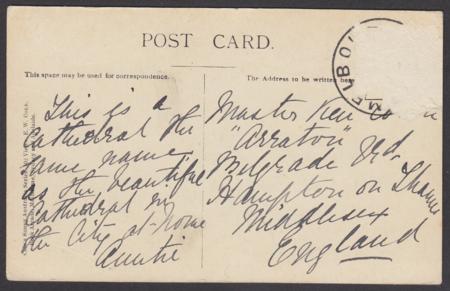 POST CARD.
This space may be used for correspondence.
The Address to be written here
MELBO
This is a
Cathedral the
same name
as the beautiful
Cathedral in
the City at home
Auntie
Master Ken
"Arraton"
Belgrade Rd
Hampton on Thames
Middlesex
England